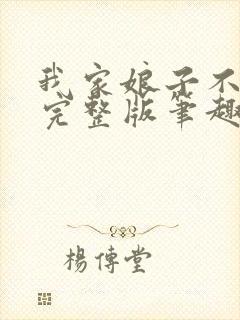 我家娘子不
完整版笔趣
杨傳堂